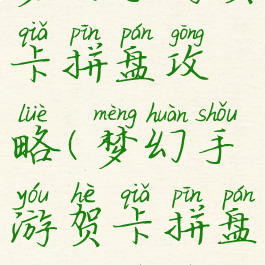 qiǎ pīn pán gōng
卡拼盘攻
lüè mèng huàn shǒu
略(梦幻手
yóu hè qiǎ pīn pán
游贺卡拼盘